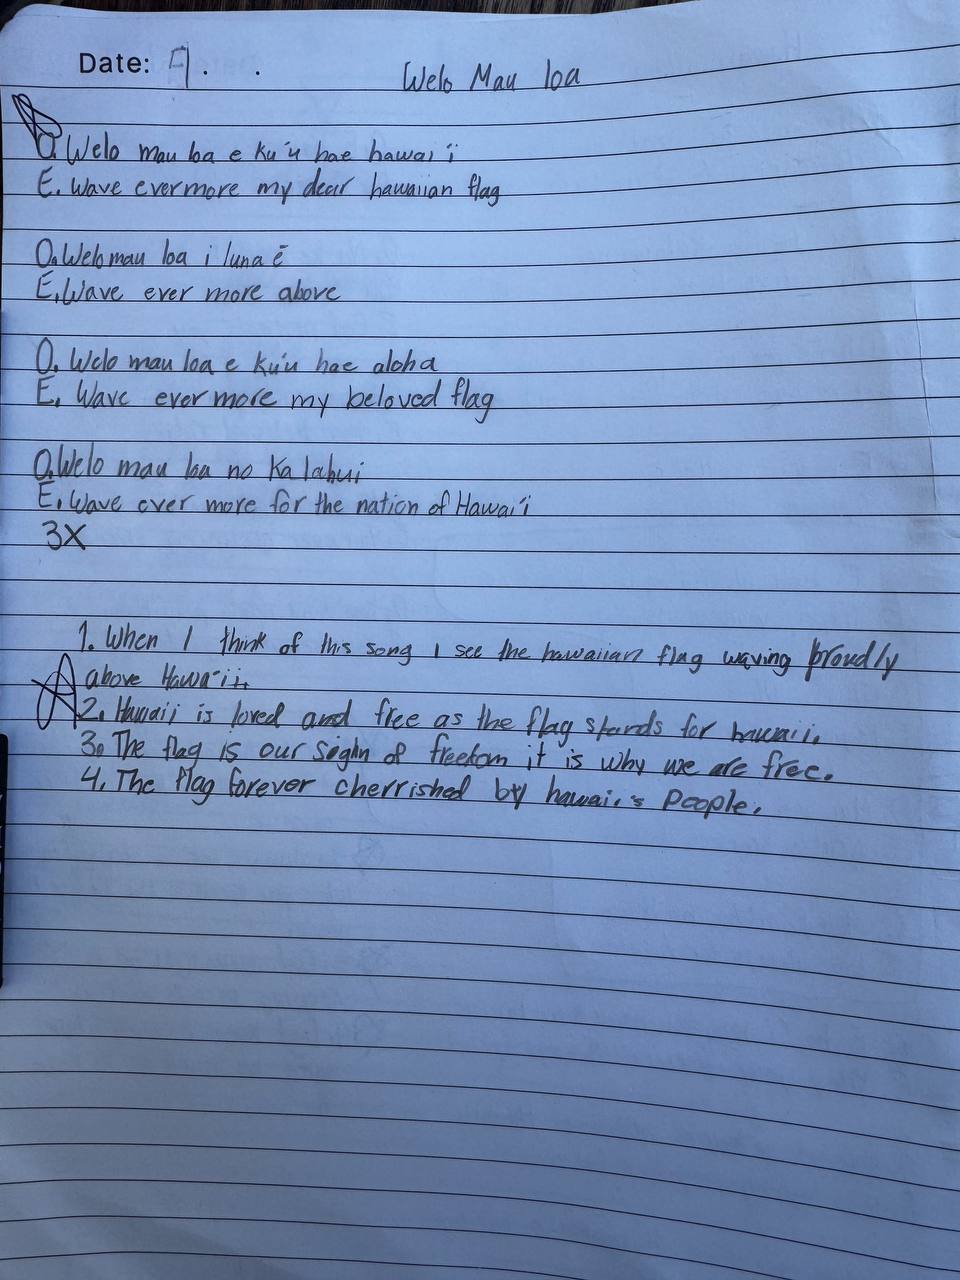 Date: A . .
Welo Mau loa
O. Welo mau loa e ku'u hae hawai'i
E. Wave evermore my dear hawaiian flag
O. Welo mau loa i luna ē
E. Wave ever more above
O. Welo mau loa e ku'u hae aloha
E. Wave ever more my beloved flag
O. Welo mau loa no Ka lahui
E. Wave ever more for the nation of Hawai'i
3X
1. When I think of this song I see the hawaiian flag waving proudly
above Hawa'ii.
A
2. Hawaii is loved and free as the flag stands for hawaii.
3. The flag is our sighn of freedom it is why we are free.
4. The flag forever cherrished by hawaii's people.